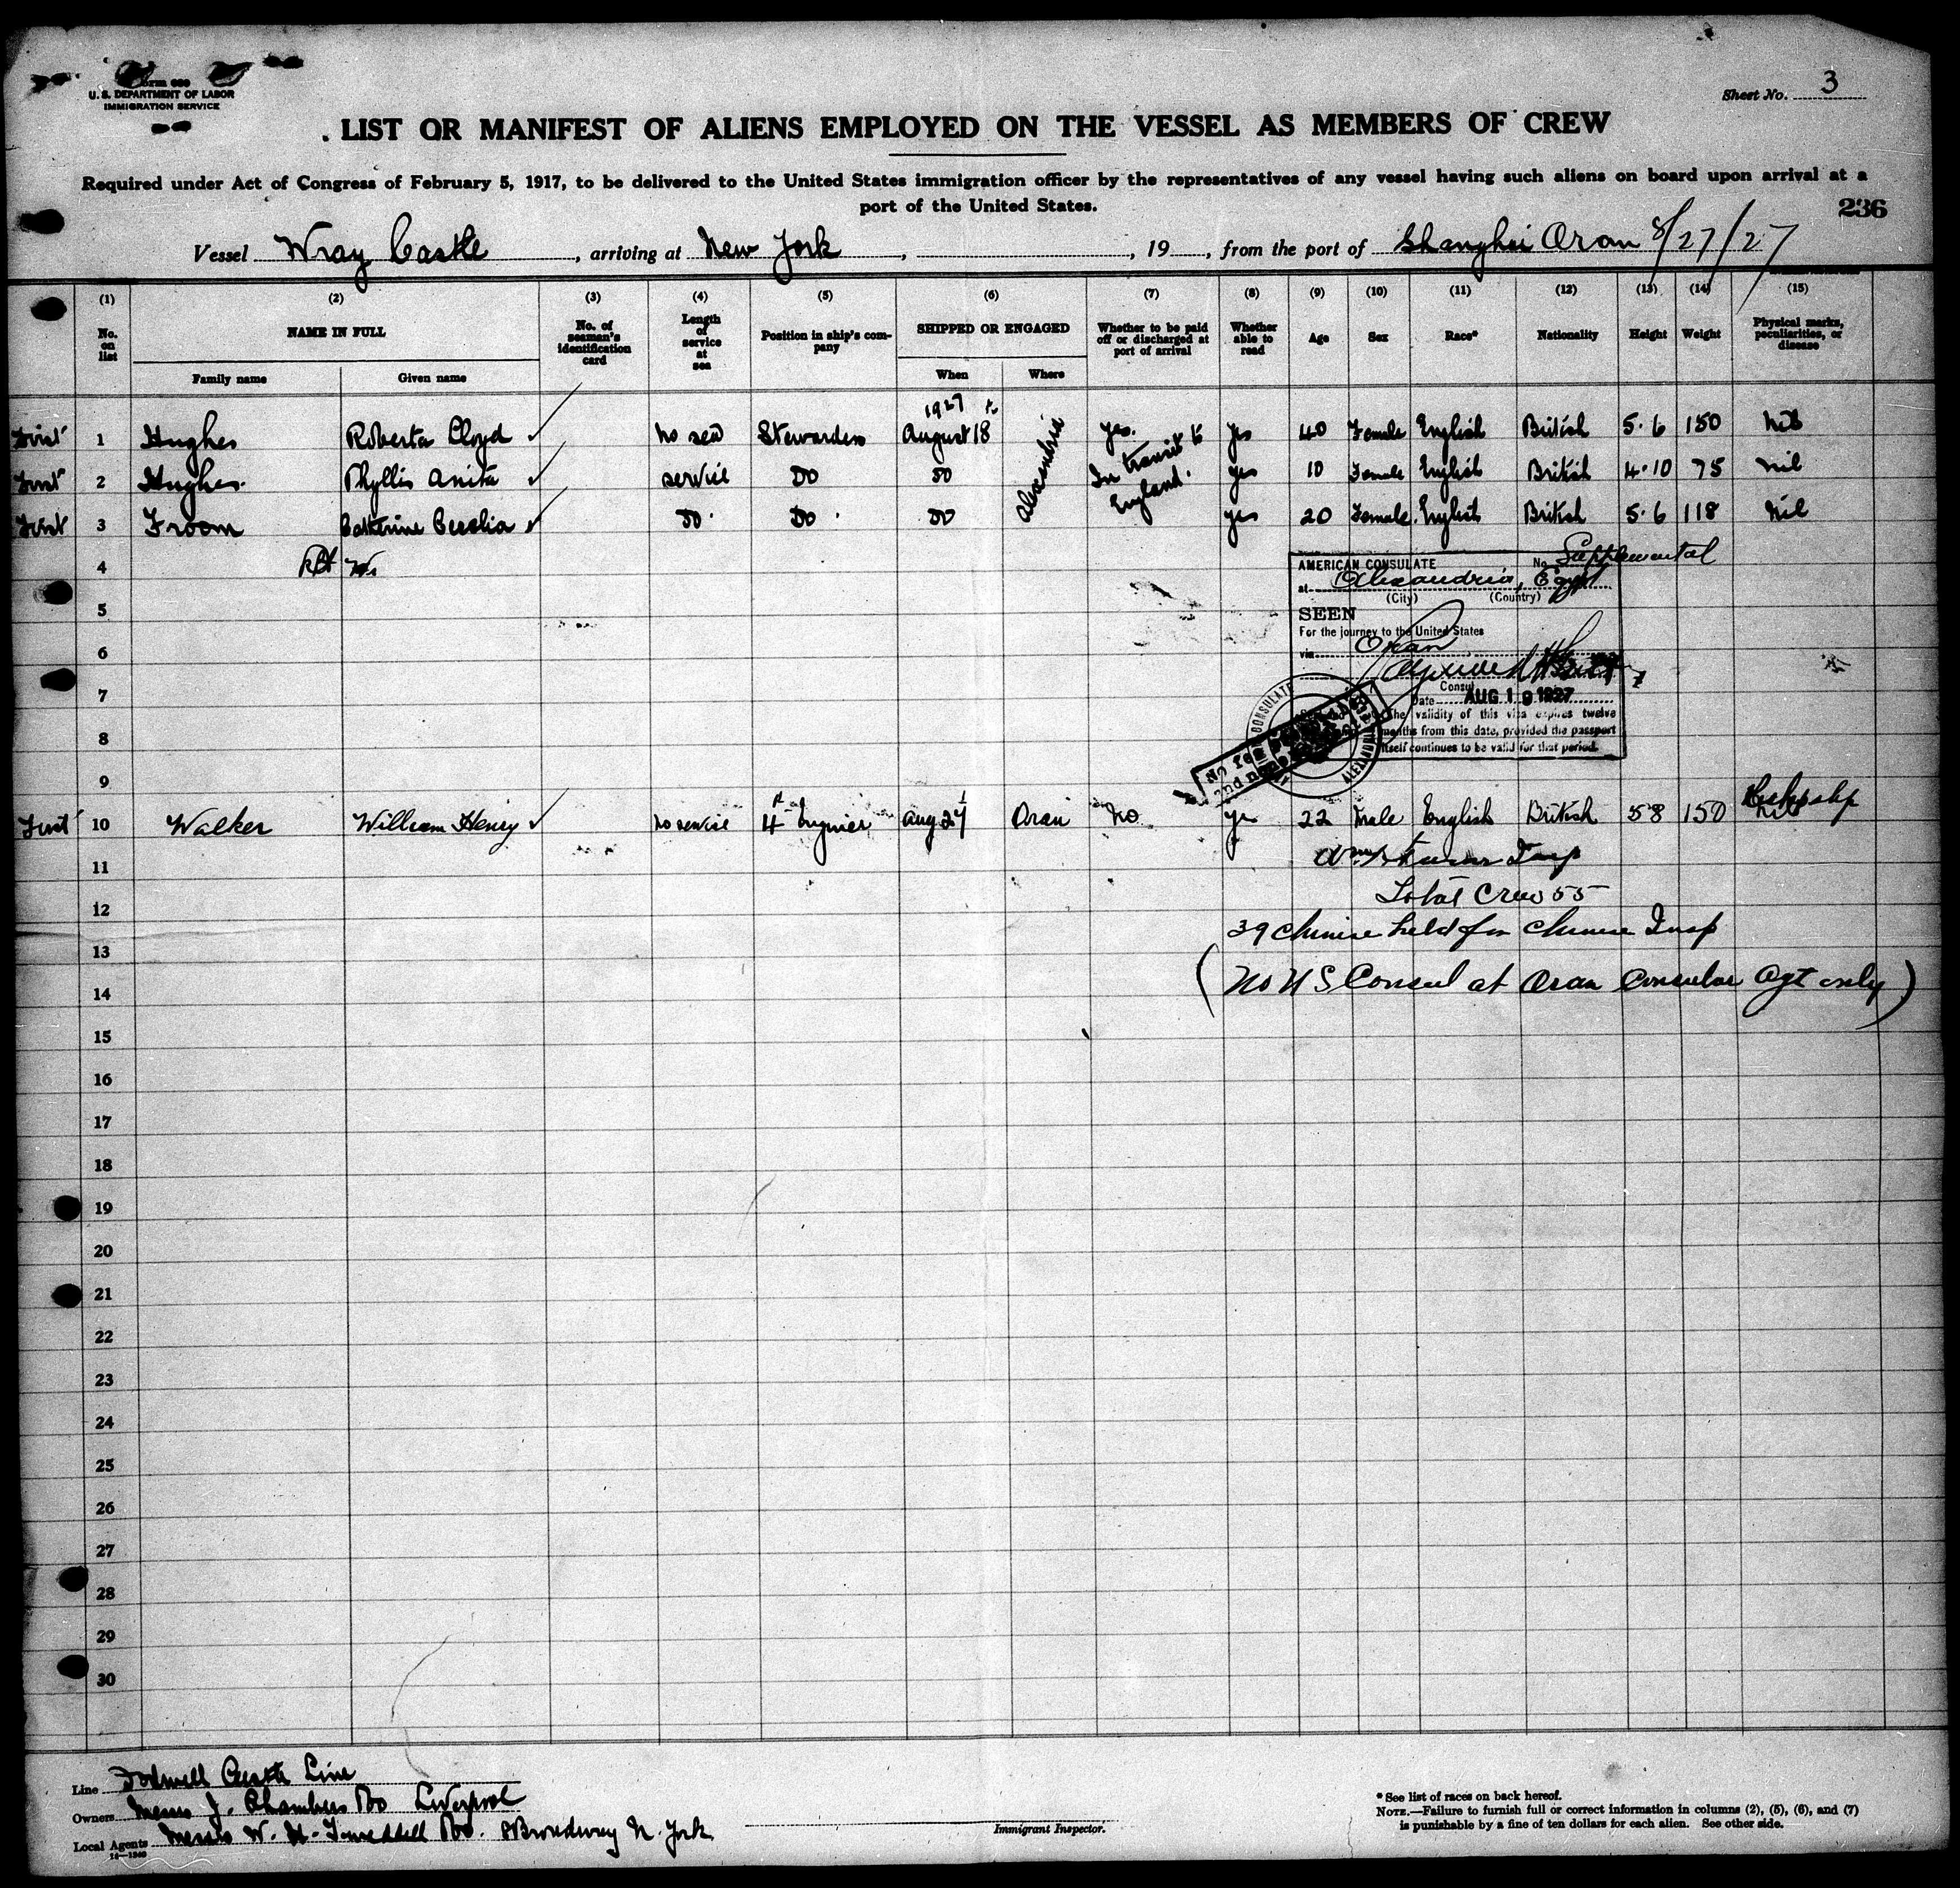 U. S. DEPARTMENT OF LABOR
IMMIGRATION SERVICE
Sheet No. 3
LIST OR MANIFEST OF ALIENS EMPLOYED ON THE VESSEL AS MEMBERS OF CREW
Required under Act of Congress of February 5, 1917, to be delivered to the United States immigration officer by the representatives of any vessel having such aliens on board upon arrival at a
port of the United States.
236
Vessel Wray Castle, arriving at New York, , 19 , from the port of Shanghai Oran 8/27/27
(1) (2) (3) (4) (5) (6) (7) (8) (9) (10) (11) (12) (13) (14) (15)
No. on list
NAME IN FULL
Family name
Given name
No. of seaman's identification card
Length of service at sea
Position in ship's company
SHIPPED OR ENGAGED
When
Where
Whether to be paid off or discharged at port of arrival
Whether able to read
Age
Sex
Race*
Nationality
Height
Weight
Physical marks, peculiarities, or disease
1927
First 1 Hughes Roberta Lloyd no sea Stewardess August 18 Alexandria yes. yes 40 Female English British 5.6 150 nil
First 2 Hughes Phyllis Anita service Do Do In transit to England. yes 10 Female English British 4.10 75 nil
First 3 Froom Catherine Cecelia Do Do Do yes 20 Female English British 5.6 118 nil
4
5
6
7
8
9
AMERICAN CONSULATE No. Supplemental
at Alexandria, Egypt
(City) (Country)
SEEN
For the journey to the United States
via Oran
Consul
Date AUG 19 1927
The validity of this visa expires twelve
months from this date, provided the passport
itself continues to be valid for that period.
No fee
CONSULATE
First 10 Walker William Henry no service 4th Engineer Aug 24 Oran No yes 22 male English British 5 8 150 nil
11
Total Crew 55
12
39 Chinese held for Chinese Insp
13
(No U S Consul at Oran Consular Agt only)
14
15
16
17
18
19
20
21
22
23
24
25
26
27
28
29
30
Line Dodwell Castle Line
Owners Messrs J. Chambers Co Liverpool
Local Agents Messrs W. H. Tweddell Co. 8 Broadway N. York
Immigrant Inspector.
* See list of races on back hereof.
NOTE.—Failure to furnish full or correct information in columns (2), (5), (6), and (7)
is punishable by a fine of ten dollars for each alien. See other side.